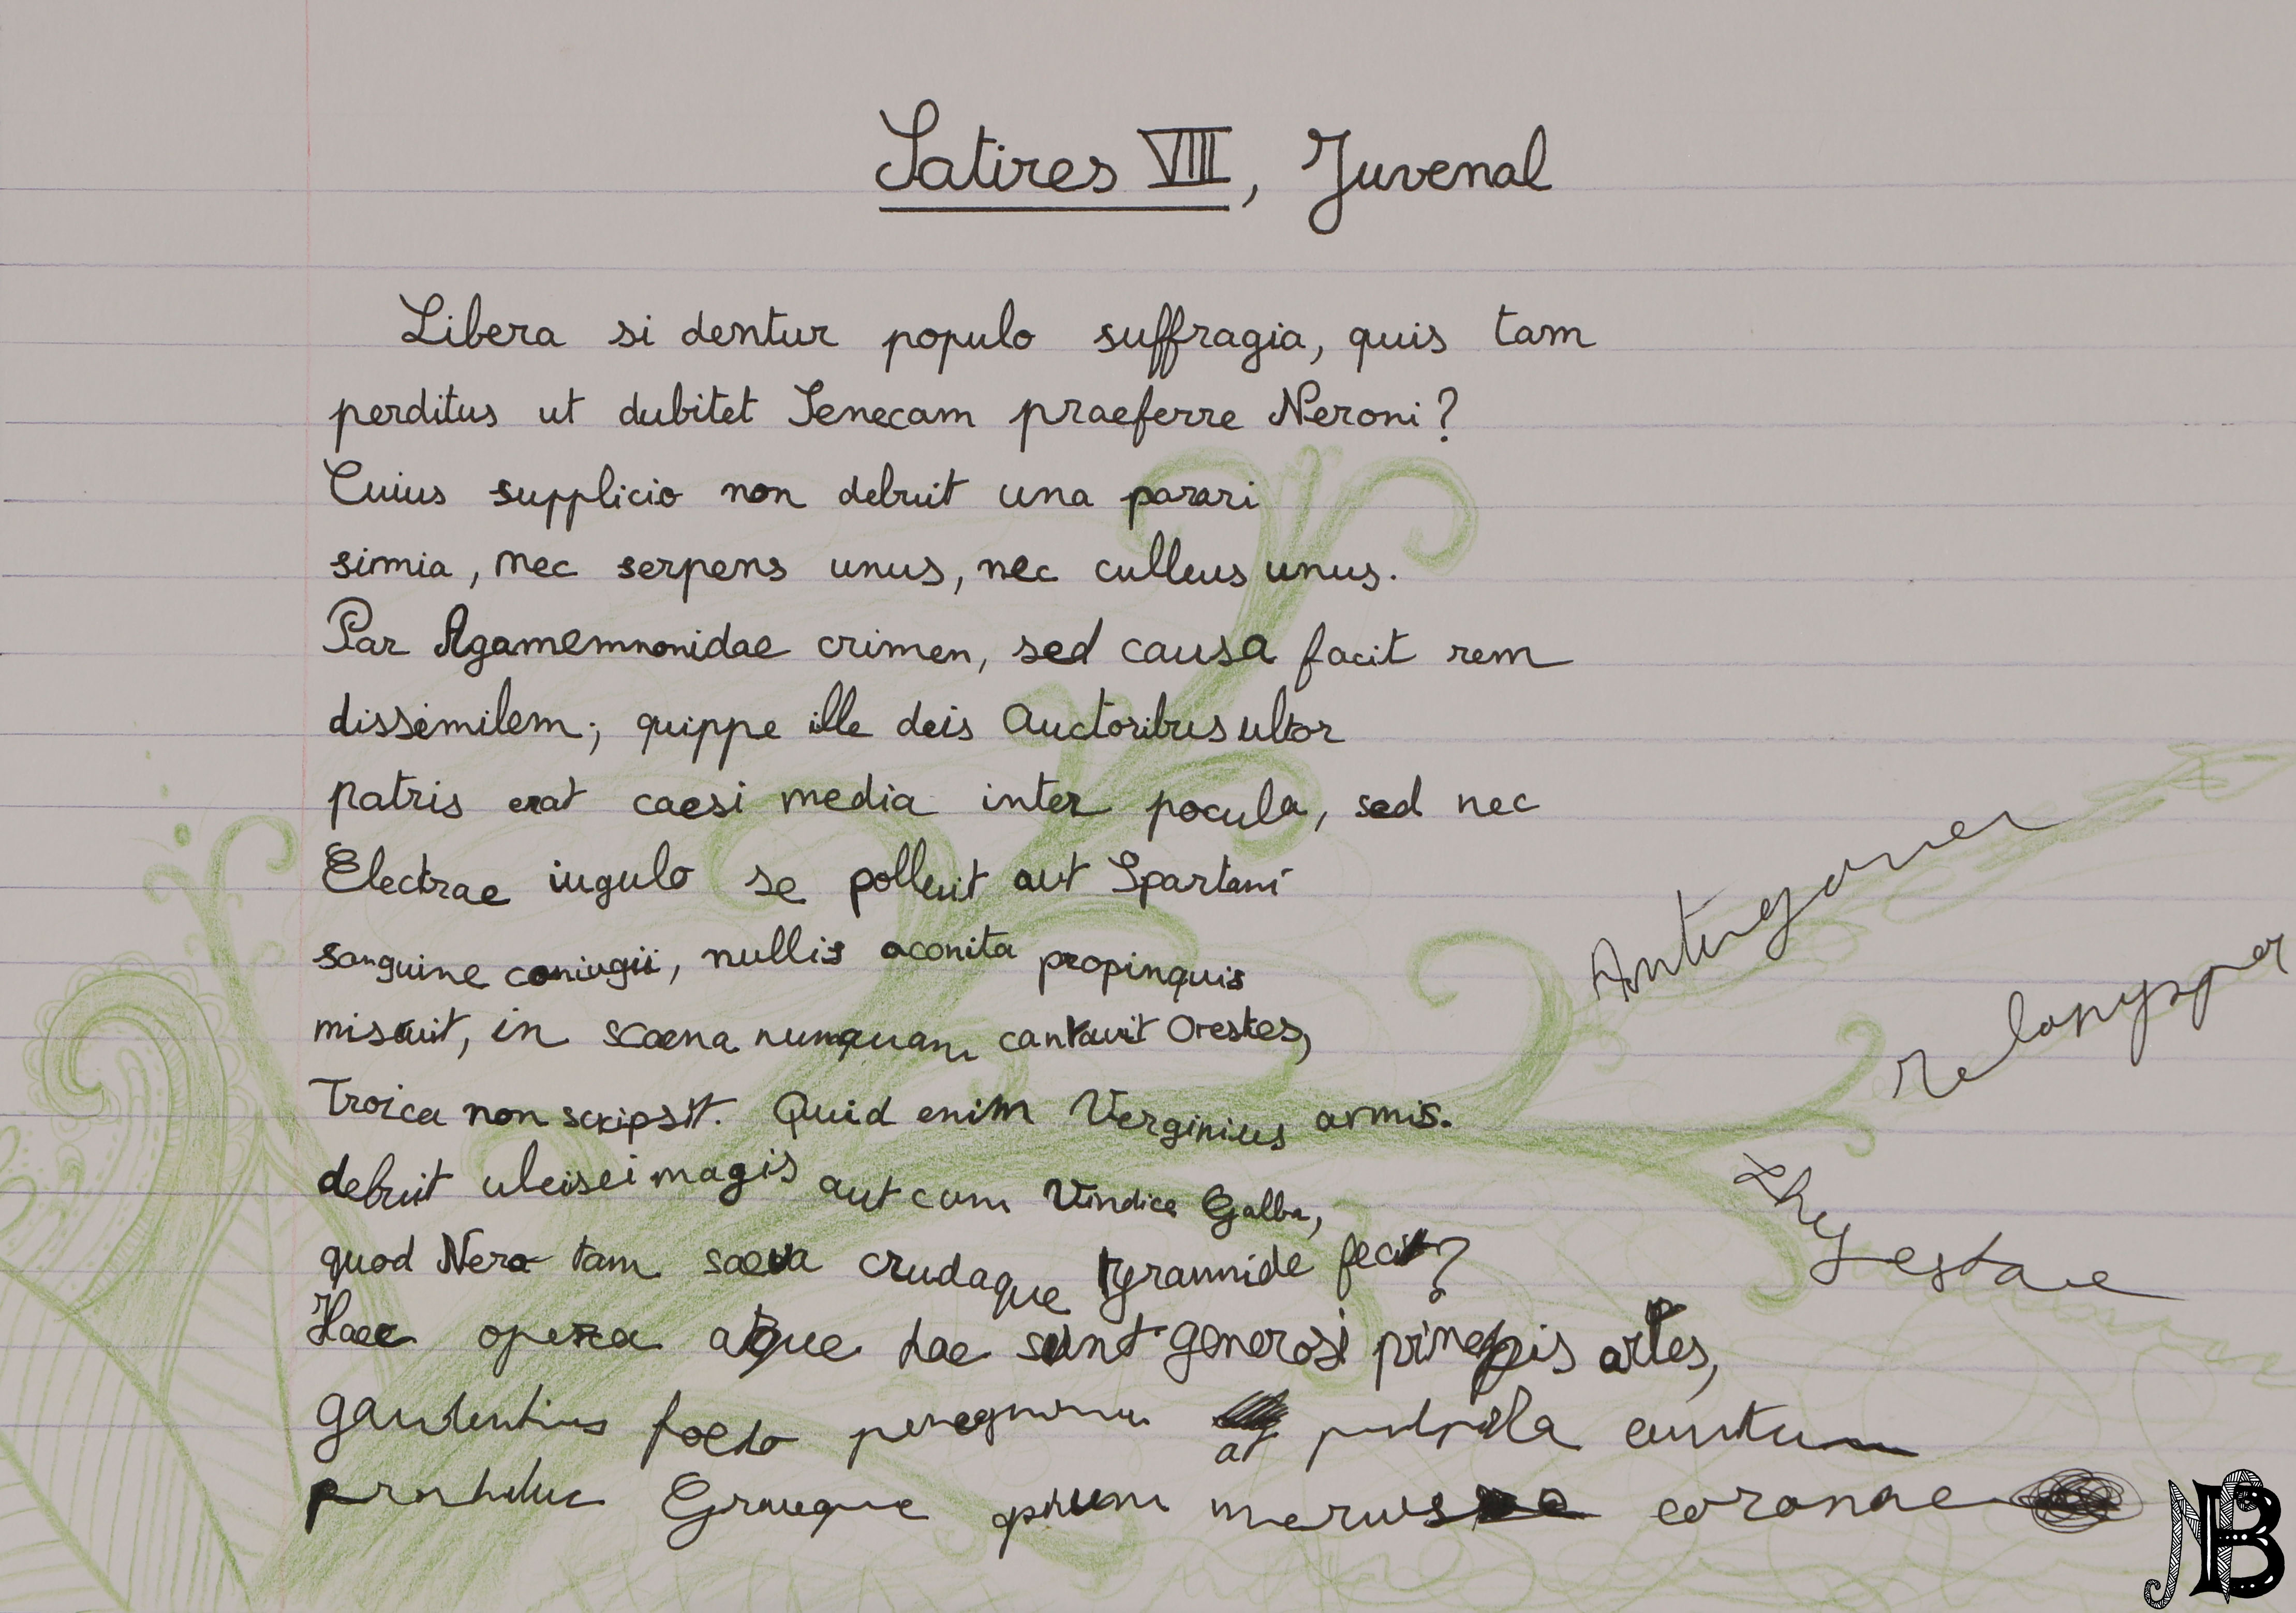 Satires VIII, Juvenal
Libera si dentur populo suffragia, quis tam
perditus ut dubitet Senecam praeferre Neroni?
Cuius supplicio non debuit una parari
simia, nec serpens unus, nec culleus unus.
Par Agamemnonidae crimen, sed causa facit rem
dissimilem; quippe ille deis auctoribus ultor
patris erat caesi media inter pocula, sed nec
Electrae iugulo se polluit aut Spartani
sanguine coniugii, nullis aconita propinquis
miscuit, in scaena numquam cantavit Orestes,
Troica non scripsit. Quid enim Verginius armis.
debuit ulcisci magis aut cum Vindice Galba,
quod Nero tam saeva crudaque tyrannide fecit?
Haec opera atque hae sunt generosi principis artes,
gaudentius foedo ad pulpita cantum
Graueque apium coronae
Antigones
Thyestae
NB